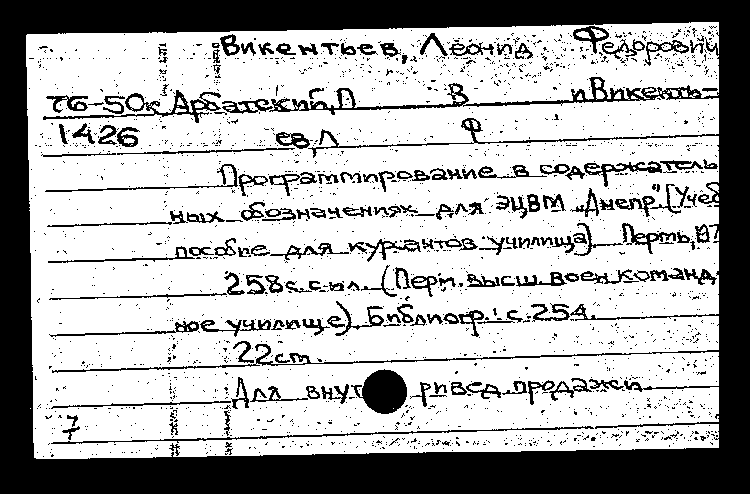 Викентьев, Леонид Федорович
76-50к Арбатский, П В и Викенть-
1426 ев, Л Ф
Программирование в содержатель
ных обозначениях для ЭЦВМ "Днепр" [Учеб
пособие для курсантов училища] Пермь, 197
258с. с ил. (Перм. высш. воен. команд-
ное училище). Библиогр.: с. 254.
22 см.
Для внут ривед. продажи
7